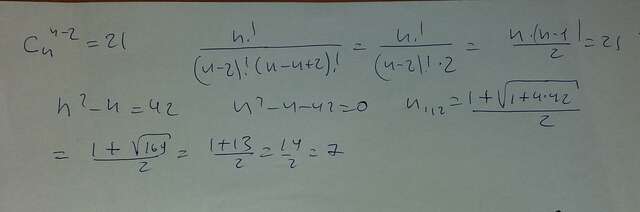 C_n^{n-2} = 21    n! / ((n-2)! (n-n+2)!) = n! / ((n-2)! · 2) = n·(n-1) / 2 = 21
n² - n = 42    n² - n - 42 = 0    n_{1,2} = (1 + √(1+4·42)) / 2
= (1 + √169) / 2 = (1+13) / 2 = 14 / 2 = 7